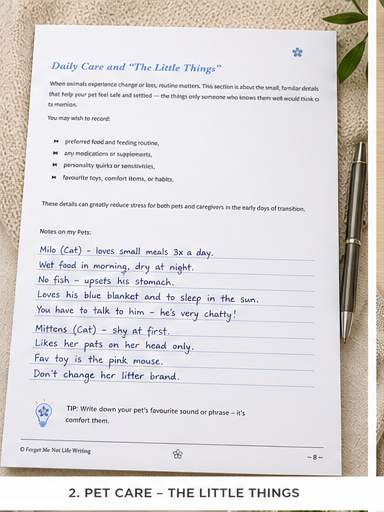 Daily Care and "The Little Things"
When animals experience change or loss, routine matters. This section is about the small, familiar details
that help your pet feel safe and settled — the things only someone who knows them well would think to
to mention.
You may wish to record:
preferred food and feeding routine,
any medications or supplements,
personality quirks or sensitivities,
favourite toys, comfort items, or habits.
These details can greatly reduce stress for both pets and caregivers in the early days of transition.
Notes on my Pets:
Milo (Cat) – loves small meals 3x a day.
Wet food in morning, dry at night.
No fish – upsets his stomach.
Loves his blue blanket and to sleep in the sun.
You have to talk to him – he's very chatty!
Mittens (Cat) – shy at first.
Likes her pats on her head only.
Fav toy is the pink mouse.
Don't change her litter brand.
TIP: Write down your pet's favourite sound or phrase – it's
comfort them.
© Forget Me Not Life Writing
~ 8 ~
2. PET CARE – THE LITTLE THINGS